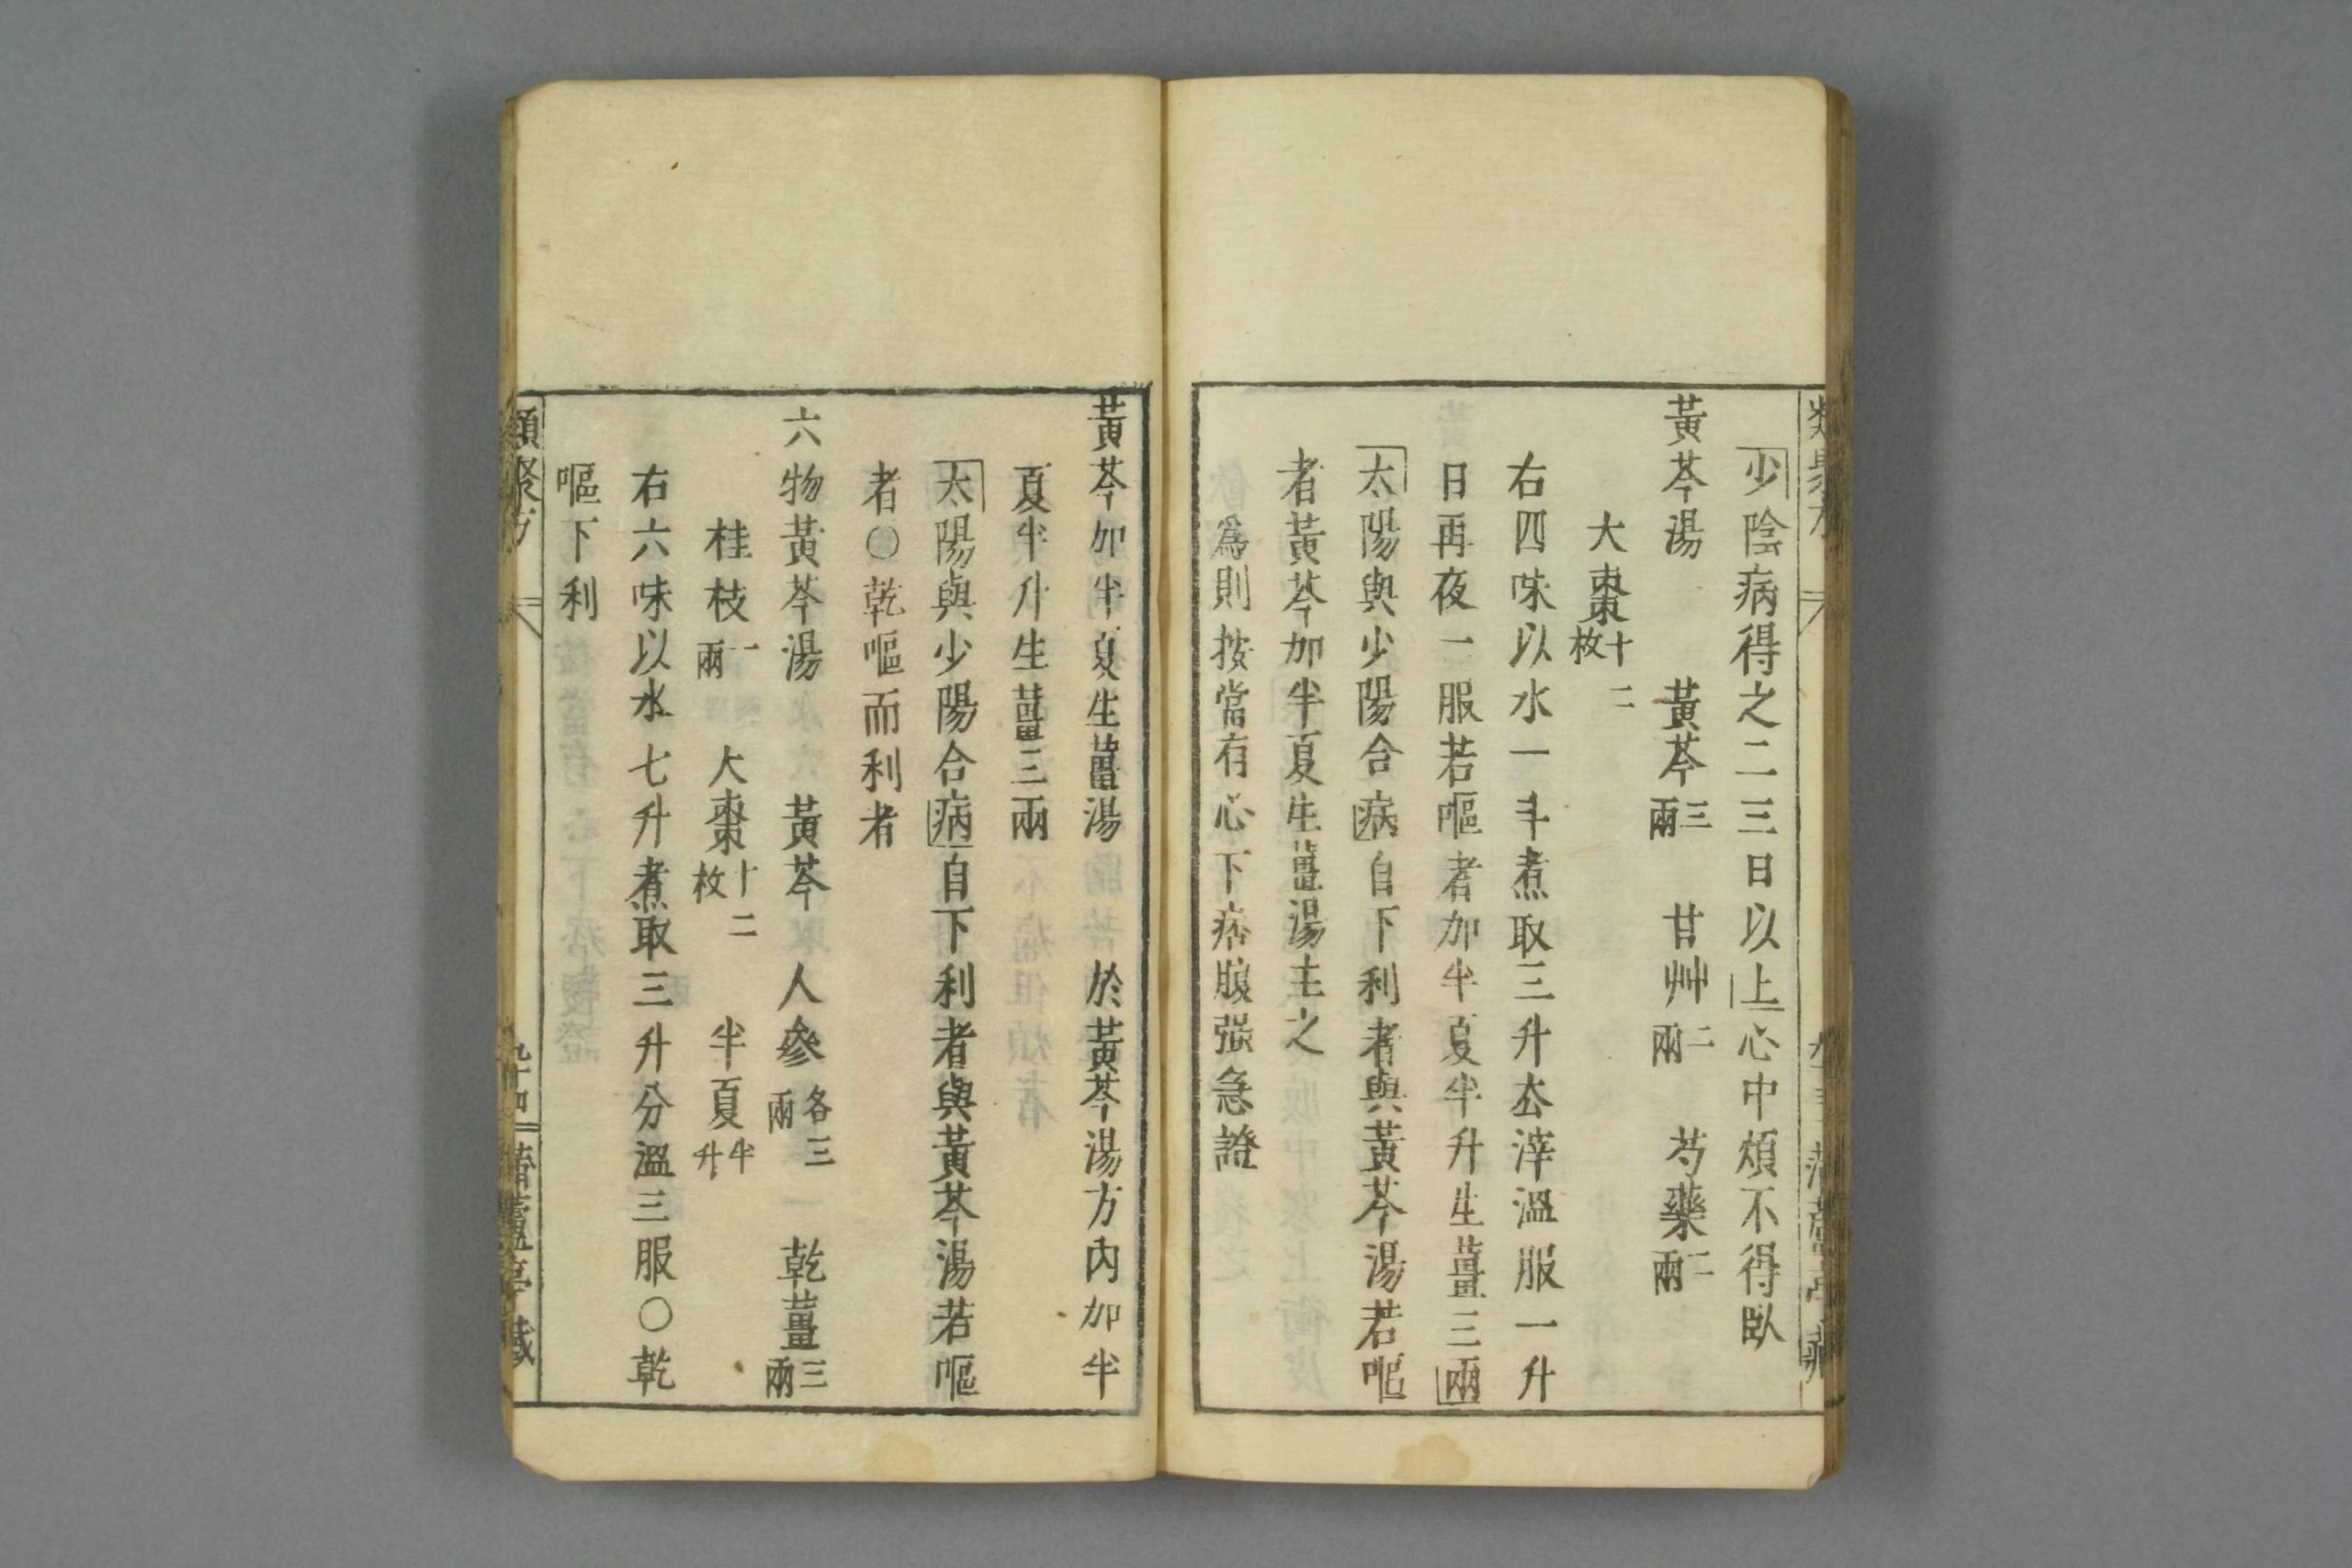 少陰病得之二三日以上心中煩不得臥
黃芩湯 黃芩三兩 甘艸二兩 芍藥二兩
大棗十二枚
右四味以水一斗煮取三升厺滓溫服一升
日再夜一服若嘔者加半夏半升生薑三兩
太陽與少陽合病自下利者與黃芩湯若嘔
者黃芩加半夏生薑湯主之
爲則按當有心下痞腹强急證
黃芩加半夏生薑湯 於黃芩湯方內加半
夏半升生薑三兩
太陽與少陽合病自下利者與黃芩湯若嘔
者〇乾嘔而利者
六物黃芩湯 黃芩 人參各三兩 乾薑三兩
桂枝一兩 大棗十二枚 半夏半升
右六味以水七升煮取三升分溫三服〇乾
嘔下利
類聚方 九十四 蘆亭藏